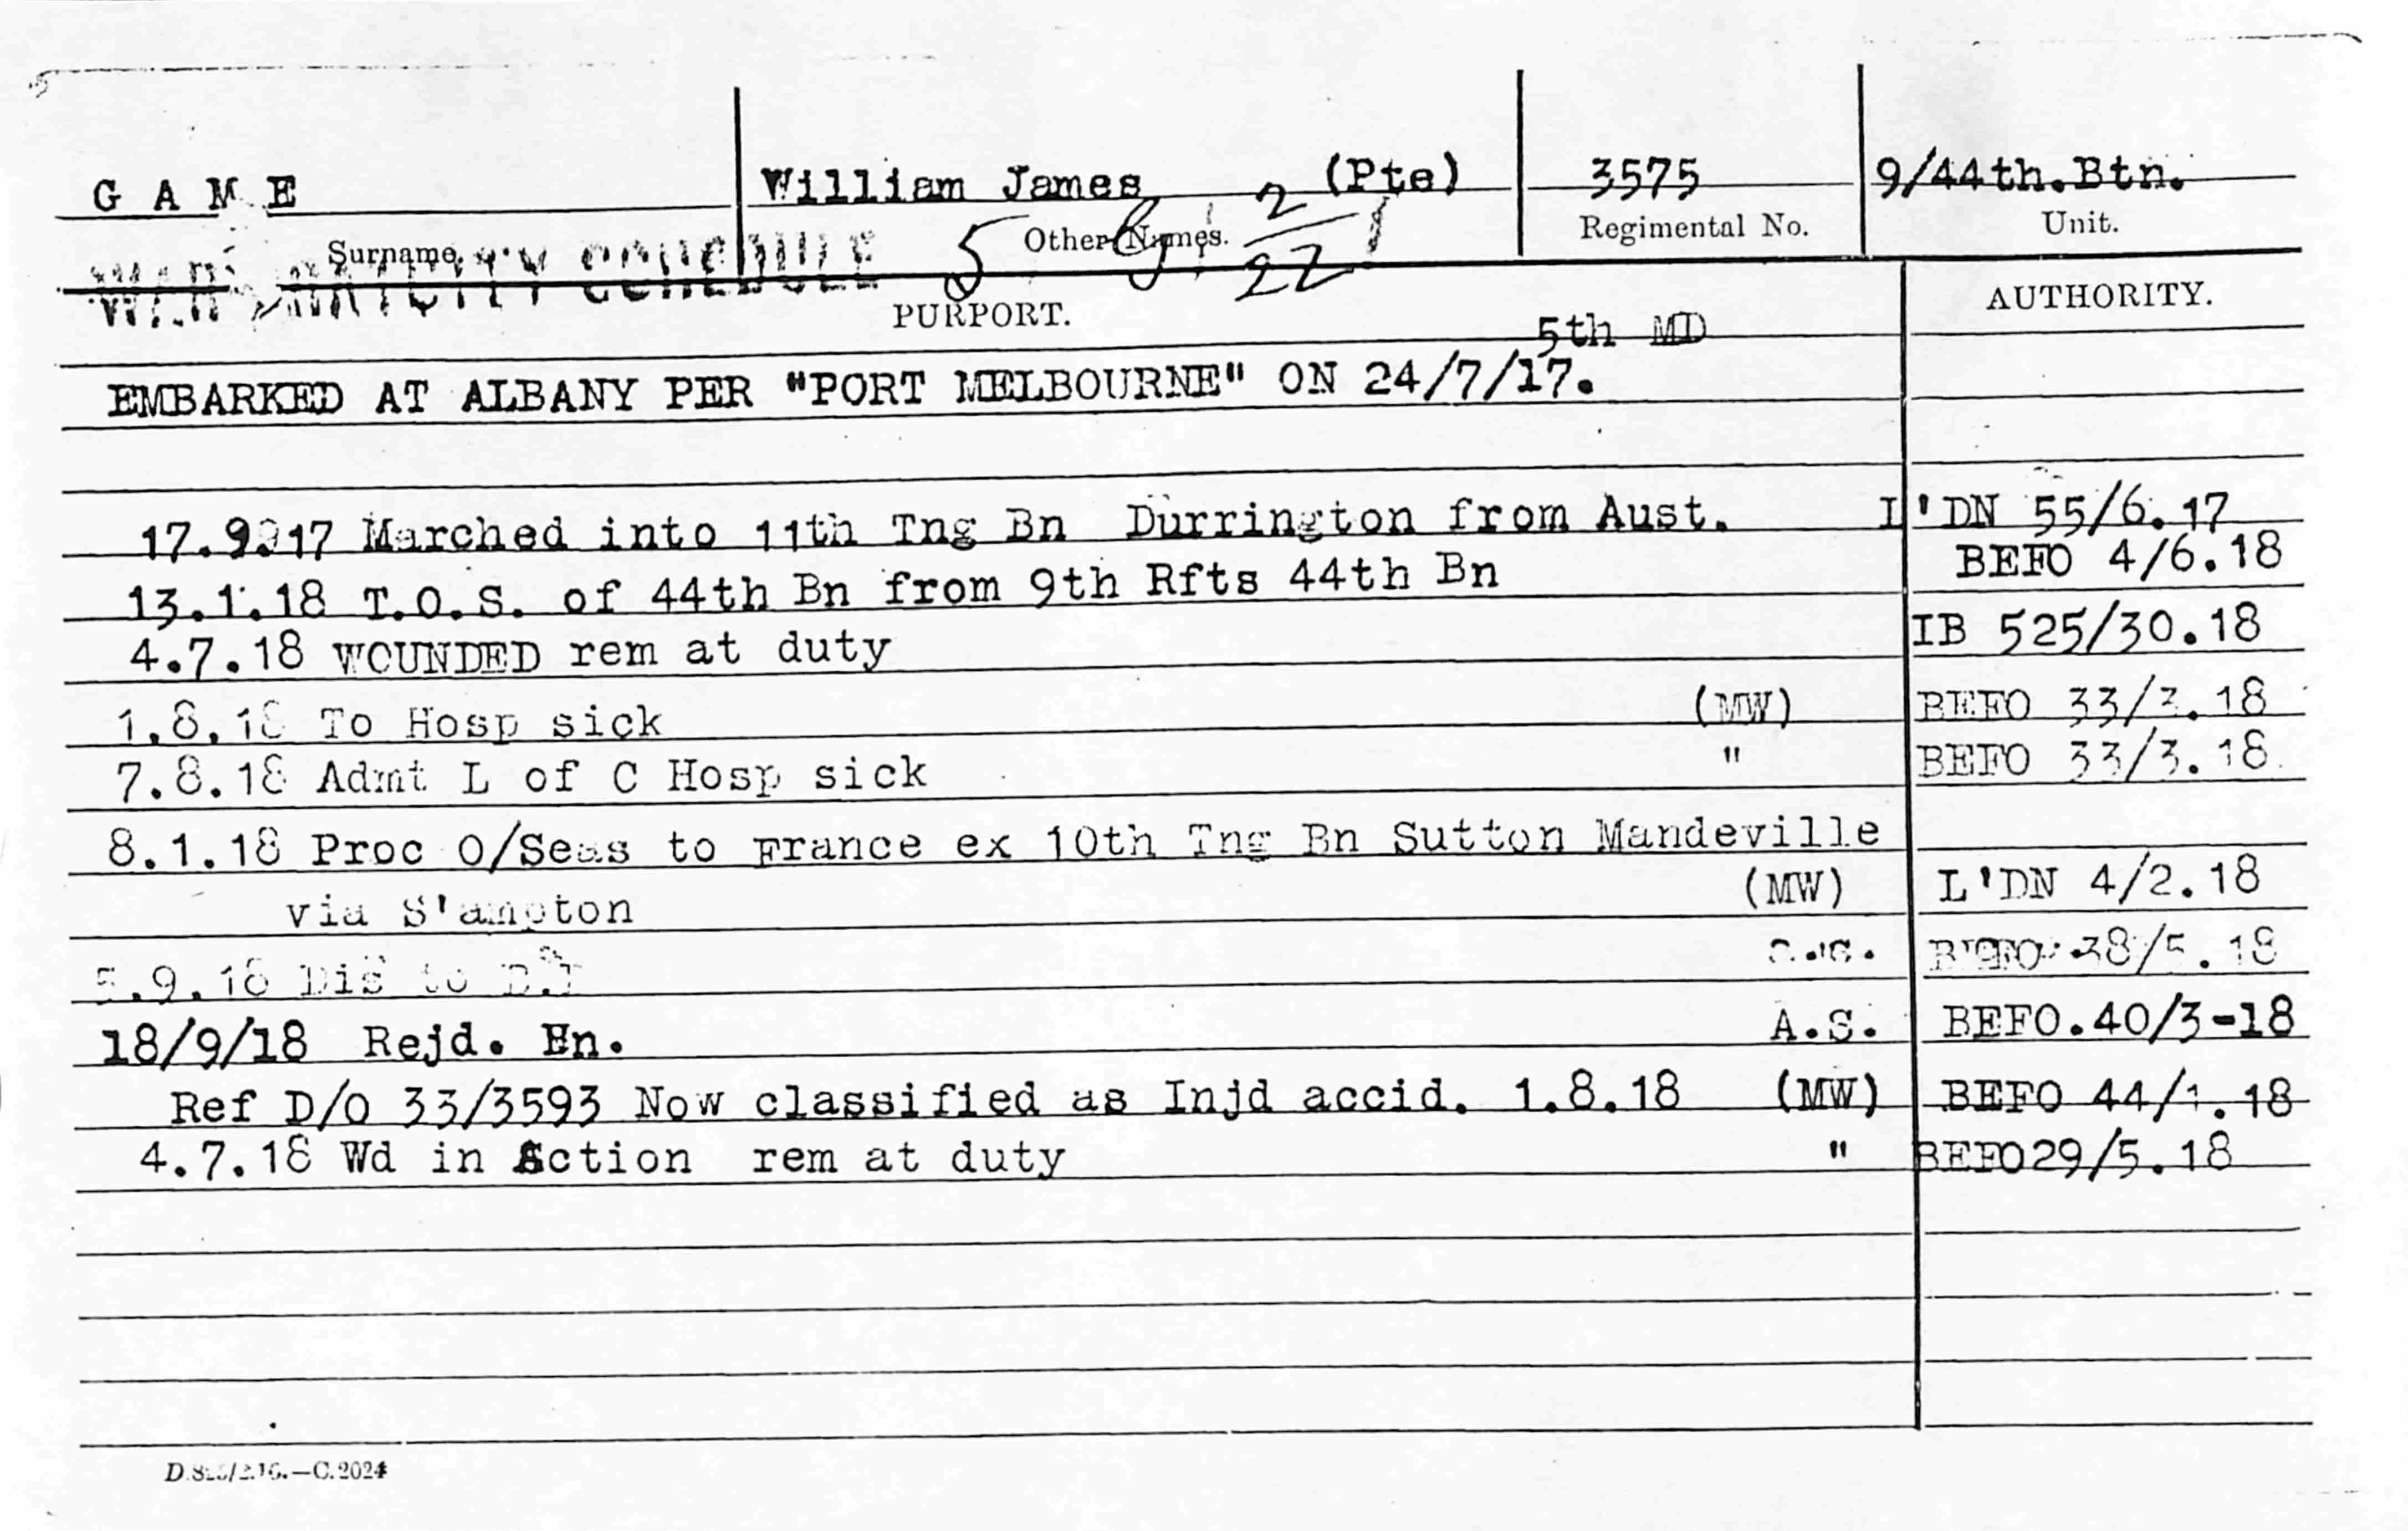 G A M E William James (Pte) 3575 9/44th.Btn.
Surname Other Names. Regimental No. Unit.
5 2/22
WAR GRATUITY SCHEDULE
PURPORT. AUTHORITY.
5th MD
EMBARKED AT ALBANY PER "PORT MELBOURNE" ON 24/7/17.
17.9.17 Marched into 11th Tng Bn Durrington from Aust. L'DN 55/6.17
13.1.18 T.O.S. of 44th Bn from 9th Rfts 44th Bn BEFO 4/6.18
4.7.18 WOUNDED rem at duty IB 525/30.18
1.8.18 To Hosp sick (MW) BEFO 33/3.18
7.8.18 Admt L of C Hosp sick " BEFO 33/3.18.
8.1.18 Proc O/Seas to France ex 10th Tng Bn Sutton Mandeville
via S'ampton (MW) L'DN 4/2.18
.9.18 Dis to BEFO 38/5.18
18/9/18 Rejd. Bn. A.S. BEFO.40/3-18
Ref D/O 33/3593 Now classified as Injd accid. 1.8.18 (MW) BEFO 44/1.18
4.7.18 Wd in Action rem at duty " BEFO29/5.18
C.2024